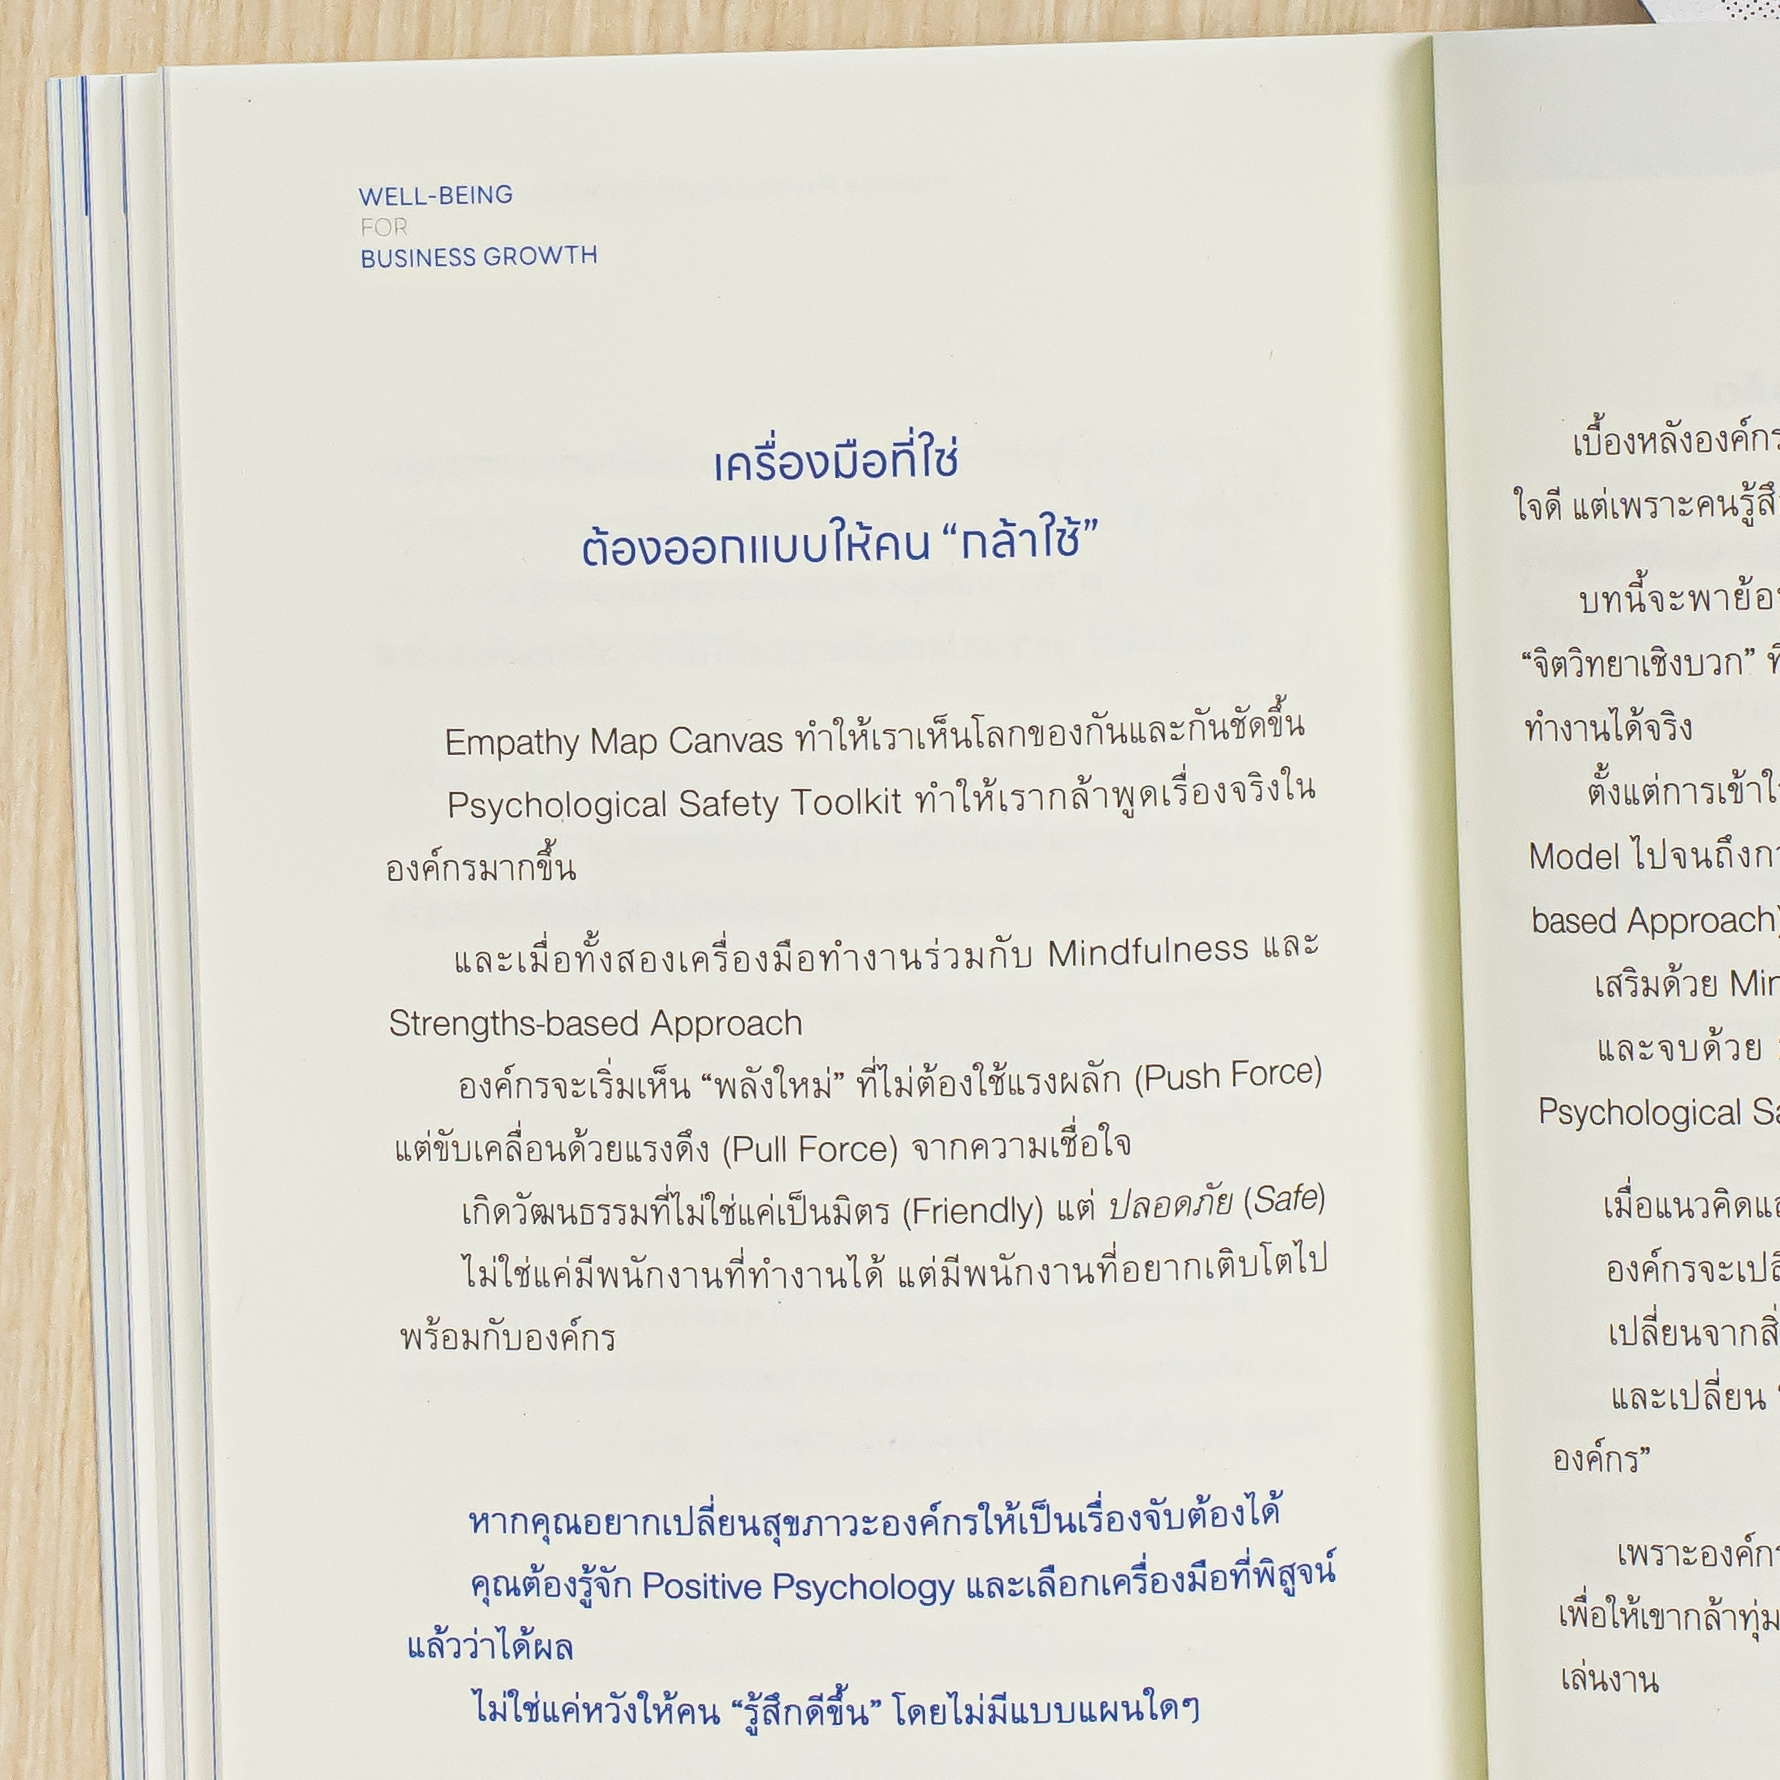 WELL-BEING
FOR
BUSINESS GROWTH
เครื่องมือที่ใช่
ต้องออกแบบให้คน “กล้าใช้”
Empathy Map Canvas ทำให้เราเห็นโลกของกันและกันชัดขึ้น
Psychological Safety Toolkit ทำให้เรากล้าพูดเรื่องจริงใน
องค์กรมากขึ้น
และเมื่อทั้งสองเครื่องมือทำงานร่วมกับ Mindfulness และ
Strengths-based Approach
องค์กรจะเริ่มเห็น “พลังใหม่” ที่ไม่ต้องใช้แรงผลัก (Push Force)
แต่ขับเคลื่อนด้วยแรงดึง (Pull Force) จากความเชื่อใจ
เกิดวัฒนธรรมที่ไม่ใช่แค่เป็นมิตร (Friendly) แต่ ปลอดภัย (Safe)
ไม่ใช่แค่มีพนักงานที่ทำงานได้ แต่มีพนักงานที่อยากเติบโตไป
พร้อมกับองค์กร
หากคุณอยากเปลี่ยนสุขภาวะองค์กรให้เป็นเรื่องจับต้องได้
คุณต้องรู้จัก Positive Psychology และเลือกเครื่องมือที่พิสูจน์
แล้วว่าได้ผล
ไม่ใช่แค่หวังให้คน “รู้สึกดีขึ้น” โดยไม่มีแบบแผนใดๆ
เบื้องหลังองค์กร
ใจดี แต่เพราะคนรู้สึ
บทนี้จะพาย้อน
“จิตวิทยาเชิงบวก” ที่
ทำงานได้จริง
ตั้งแต่การเข้าใ
Model ไปจนถึงกา
based Approach)
เสริมด้วย Min
และจบด้วย
Psychological Sa
เมื่อแนวคิดแล
องค์กรจะเปลี่
เปลี่ยนจากสิ่
และเปลี่ยน “
องค์กร”
เพราะองค์กร
เพื่อให้เขากล้าทุ่ม
เล่นงาน